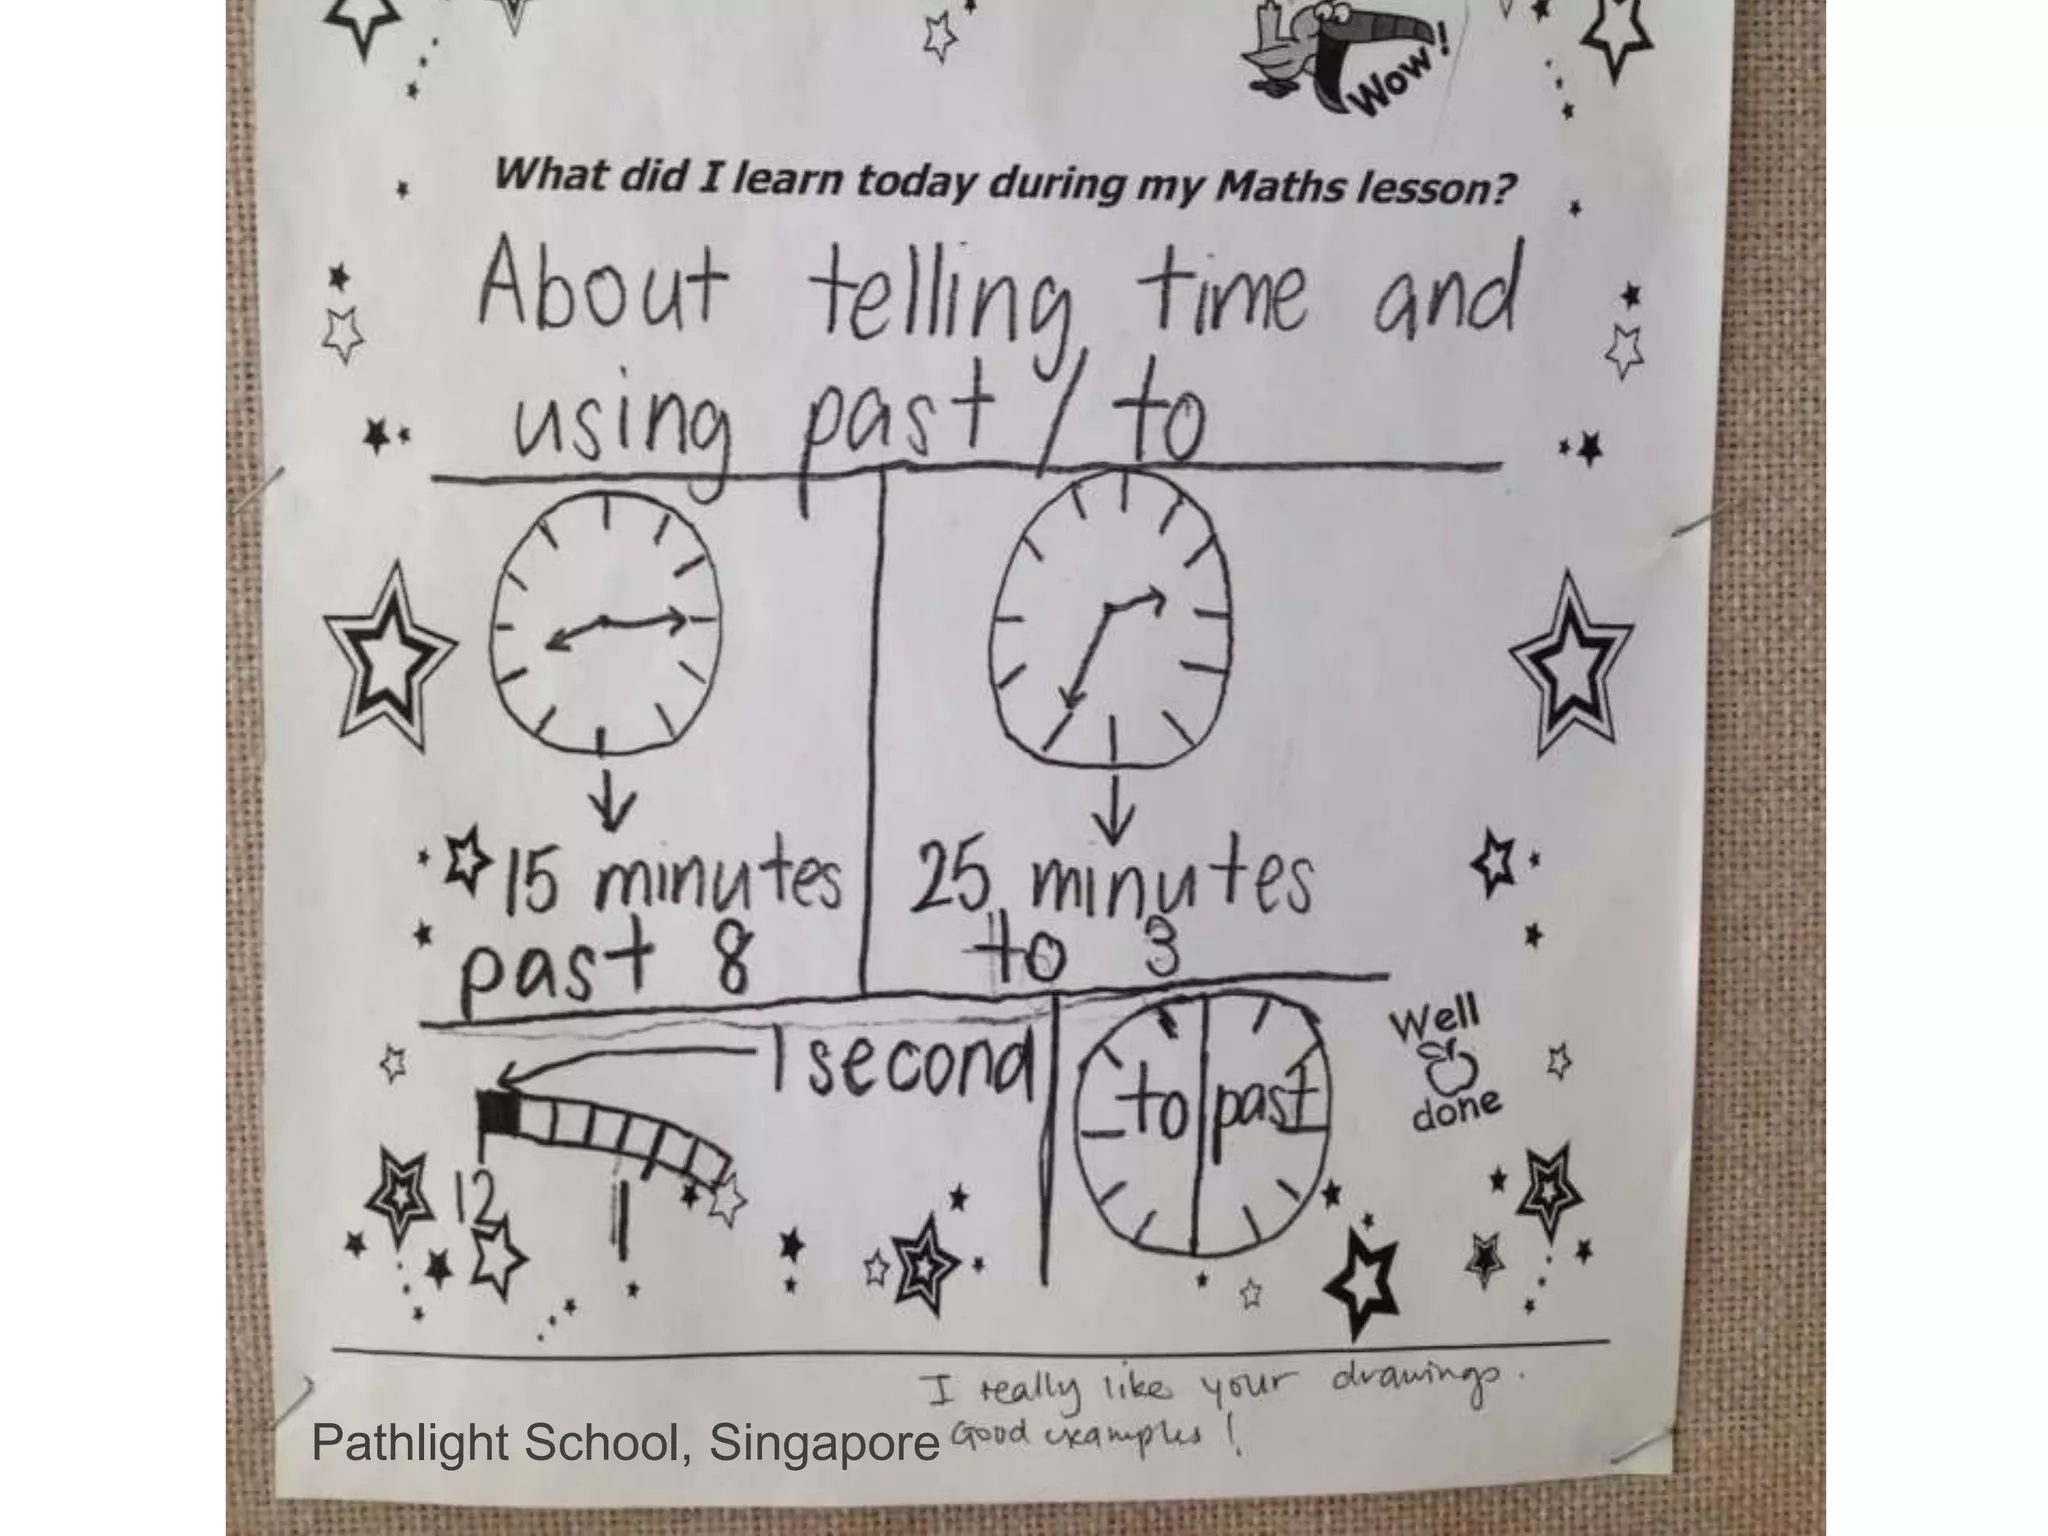 Wow!
What did I learn today during my Maths lesson?
About telling time and
using past / to
15 minutes
past 8
25 minutes
to 3
1 second
12
1
to past
Well
done
I really like your drawings.
Good examples!
Pathlight School, Singapore